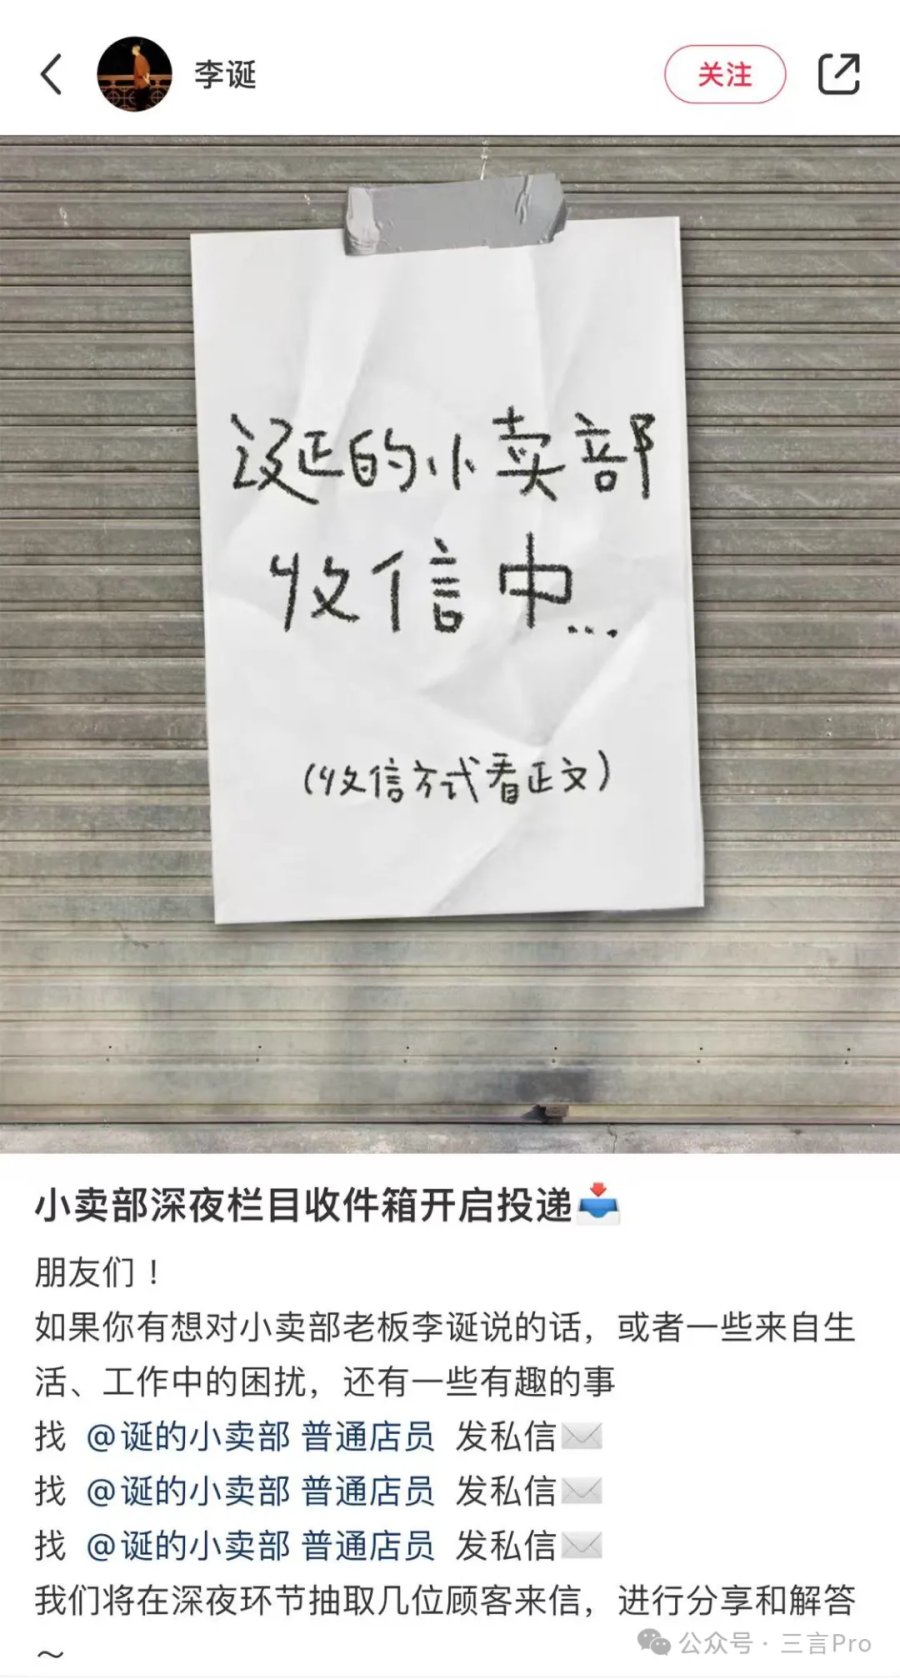 李诞
关注
诞的小卖部
收信中...
(收信方式看正文)
小卖部深夜栏目收件箱开启投递📥
朋友们！
如果你有想对小卖部老板李诞说的话，或者一些来自生
活、工作中的困扰，还有一些有趣的事
找 @诞的小卖部 普通店员 发私信✉️
找 @诞的小卖部 普通店员 发私信✉️
找 @诞的小卖部 普通店员 发私信✉️
我们将在深夜环节抽取几位顾客来信，进行分享和解答
～
公众号 · 三言Pro